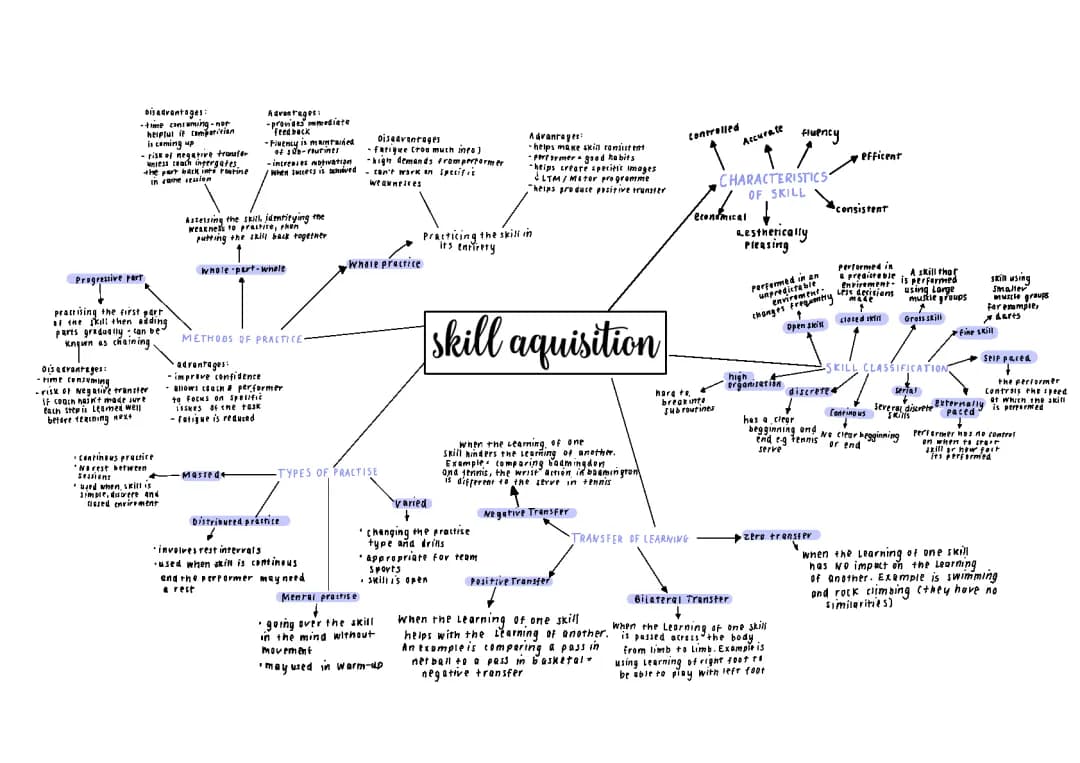 skill aquisition
METHODS OF PRACTICE
Progressive part
practising the first part
of the skill then adding
parts gradually - can be
known as chaining
Disadvantages:
- time consuming
- risk of Negative transfer
if coach hasn't made sure
each step is learned well
before teaching next
advantages:
- improve confidence
- allows coach & performer
to focus on specific
issues of the task
- fatigue is reduced
whole-part-whole
Assessing the skill, identifying the
weakness to practice, then
putting the skill back together
Disadvantages:
- time consuming - not
helpful if competition
is coming up
- risk of negative transfer
unless coach intergates
the part back into routine
in same session
Advantages:
- provides immediate
feedback
- Fluency is maintained
of sub-routines
- increases motivation
when success is achieved
Whole practice
Practicing the skill in
its entirety
Disadvantages
- fatigue (too much info)
- high demands from performer
- can't work on specific
weaknesses
Advantages:
- helps make skill consistent
- performer = good habits
- helps create specific images
↓ LTM / Motor programme
- helps produce positive transfer
CHARACTERISTICS
OF SKILL
controlled
Accurate
fluency
efficent
consistent
aesthetically
pleasing
economical
SKILL CLASSIFICATION
Open skill
performed in an
unpredictable
enviroment -
changes frequently
closed skill
performed in
a predictable
enviroment -
less decisions
made
Gross skill
A skill that
is performed
using large
muscle groups
fine skill
skill using
smaller
muscle groups
for example,
darts
Self paced
the performer
controls the speed
at which the skill
is performed
Externally
paced
Performer has no control
on when to start
skill or how fast
its performed
Serial
Several discrete
skills
Continous
No clear beginning
or end
discrete
has a clear
beggining and
end e.g tennis
serve
high
organisation
hard to
break into
subroutines
TYPES OF PRACTISE
Massed
• continous practice
• No rest between
sessions
• used when skill is
simple, discrete and
closed enviroment
Distributed practice
• involves rest intervals
• used when skill is continous
and the performer may need
a rest
Mental practise
• going over the skill
in the mind without
movement
• may used in warm-up
Varied
• changing the practise
type and drills
• appropriate for team
sports
• skill is open
TRANSFER OF LEARNING
Negative Transfer
When the learning of one
skill hinders the learning of another.
Example - comparing badmingdon
and tennis, the wrist action in badmington
is different to the serve in tennis
Positive Transfer
When the learning of one skill
helps with the learning of another.
An example is comparing a pass in
netball to a pass in basketal =
negative transfer
Bilateral Transfer
When the learning of one skill
is passed across the body
from limb to limb. Example is
using learning of right foot to
be able to play with left foot
zero transfer
when the learning of one skill
has NO impact on the learning
of another. Example is swimming
and rock climbing (they have no
similarities)